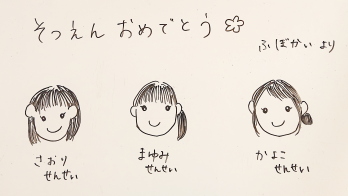 そつえん おめでとう
ふぼかい より
さおり
せんせい
まゆみ
せんせい
かよこ
せんせい